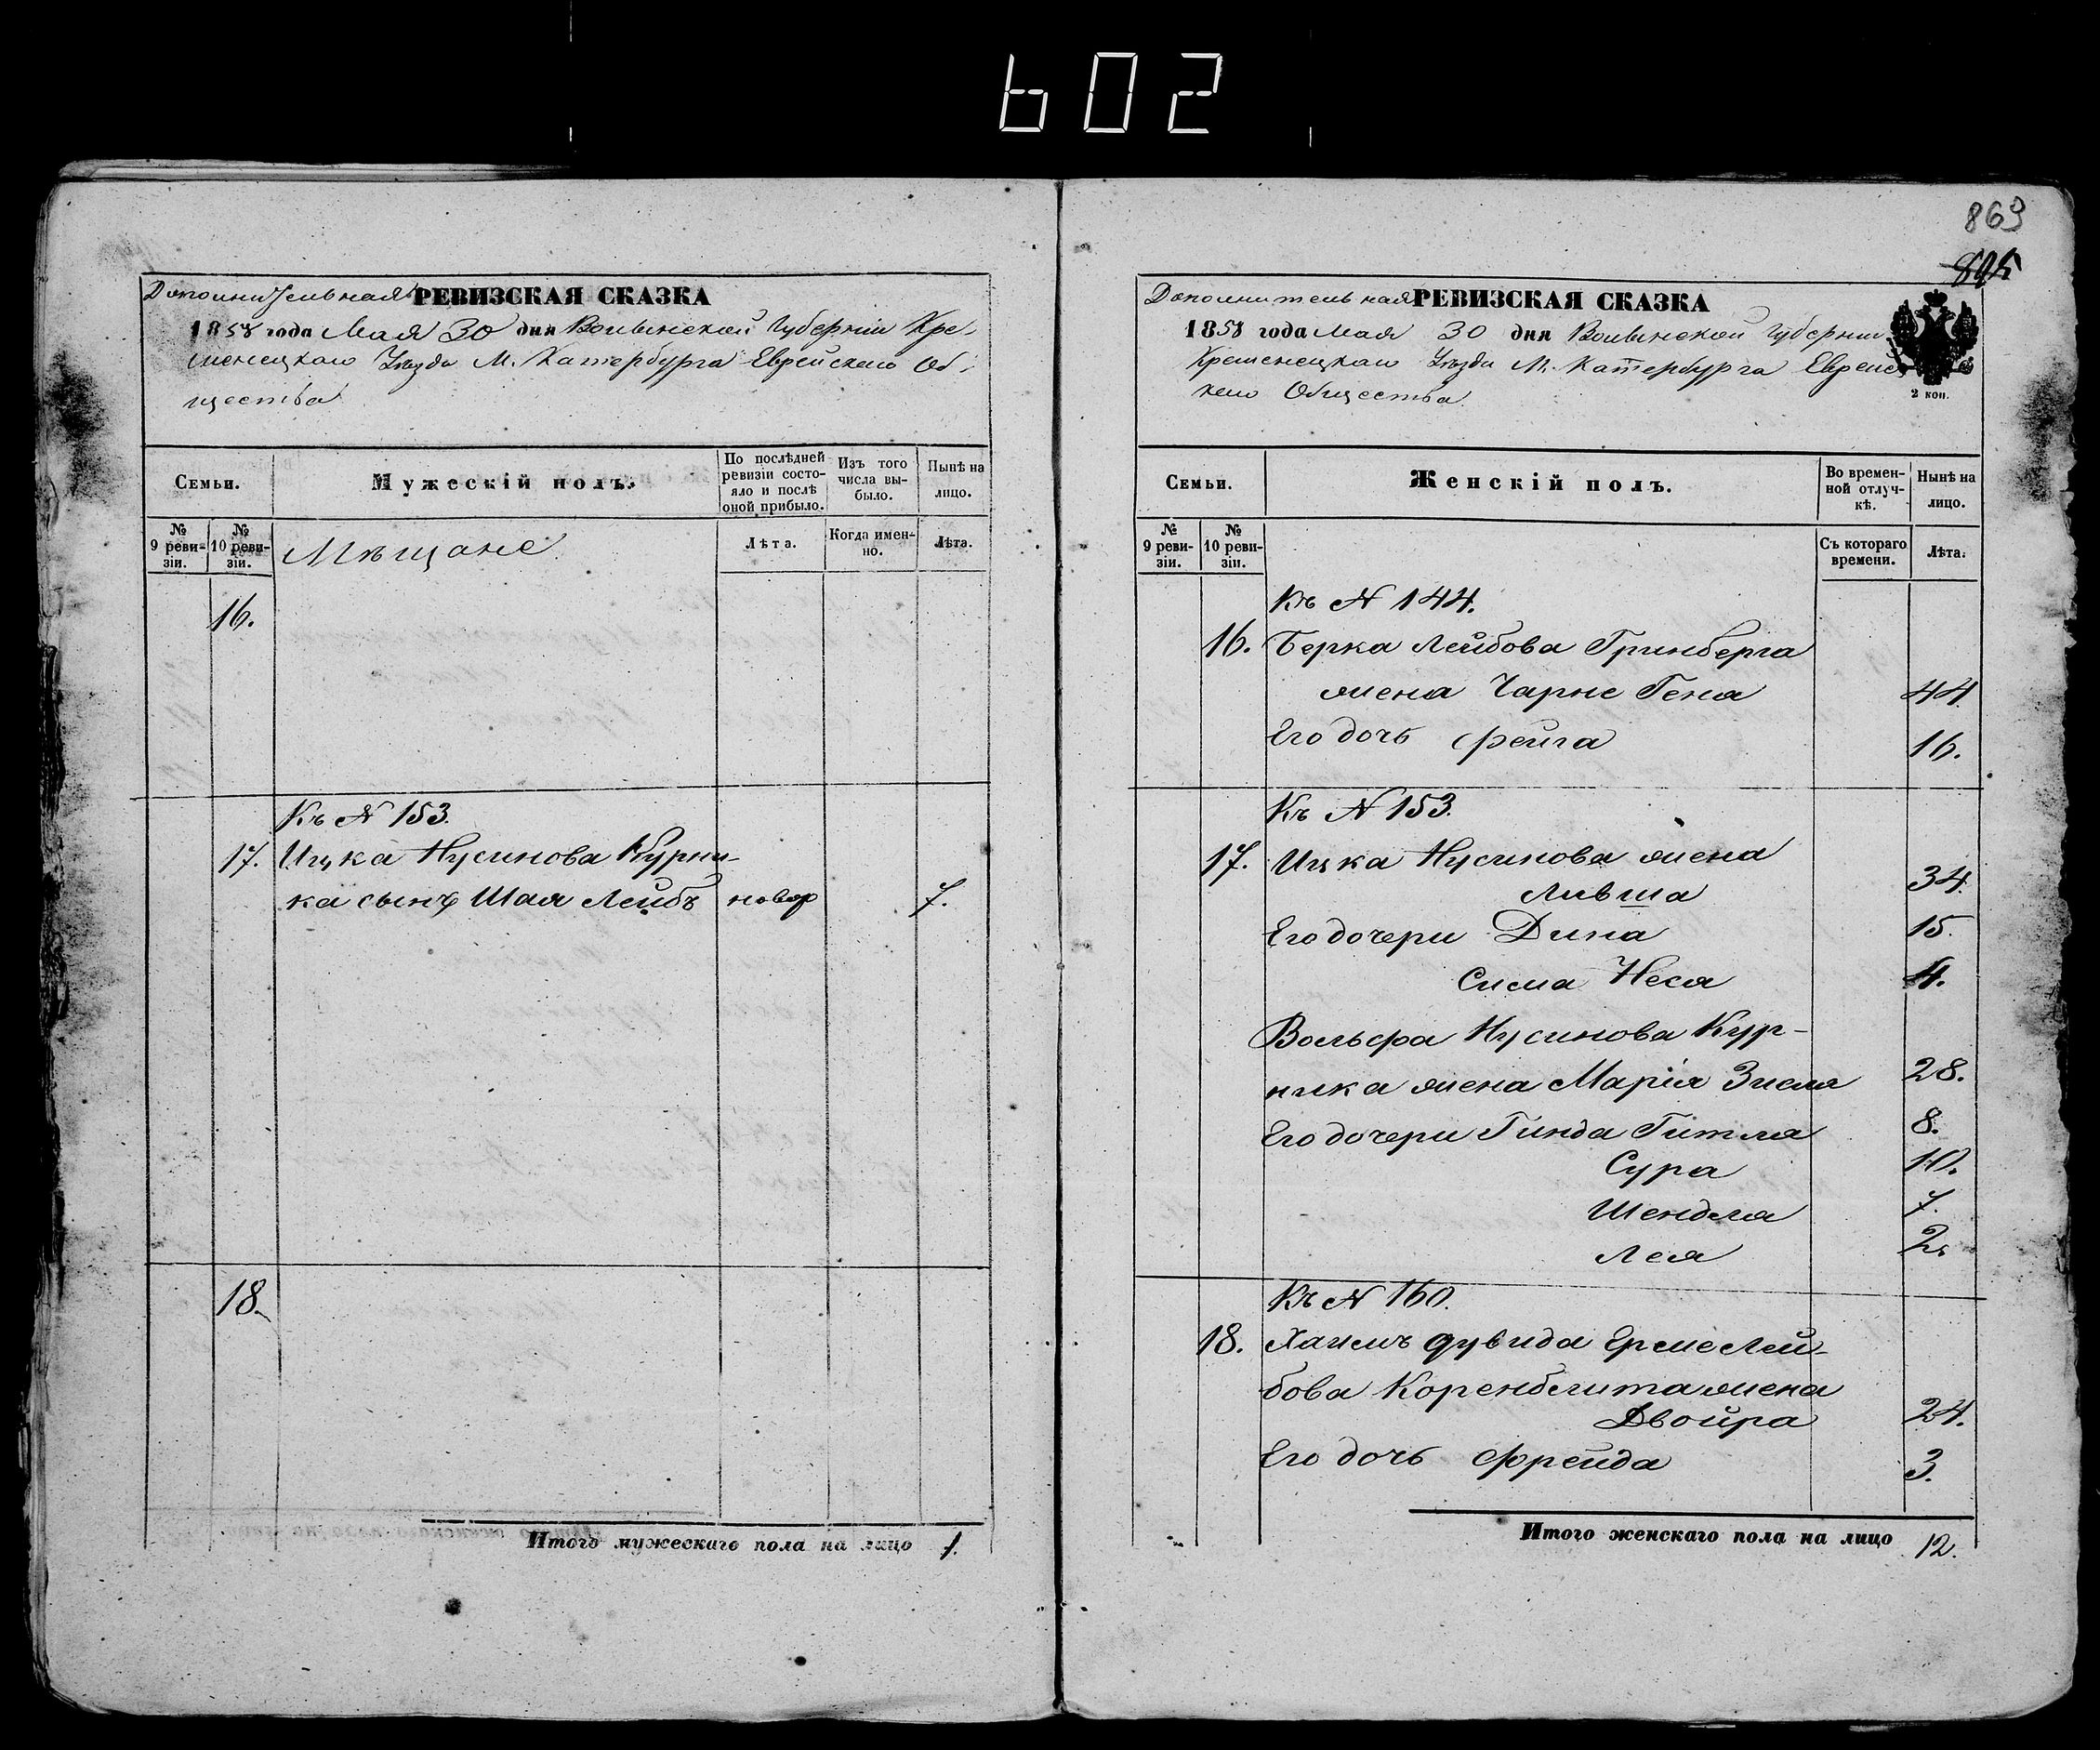 602
863
Дополнительная РЕВИЗСКАЯ СКАЗКА
1858 года Мая 30 дня Волынской Губерніи Кре-
менецкаго Уѣзда М. Катербурга Еврейскаго Об-
щества
Семьи.
Мужескій полъ.
По послѣдней ревизіи состо-
яло и послѣ оной прибыло.
Изъ того числа вы-
было.
Нынѣ на лицо.
№ 9 реви-
зіи.
№ 10 реви-
зіи.
Мѣщане
Лѣта.
Когда имен-
но.
Лѣта.
16.
Къ № 153.
17. Ицка Нусинова Курни-
ка сынъ Шая Лейбъ новор 7.
18.
Итого мужескаго пола на лицо 1.
Дополнительная РЕВИЗСКАЯ СКАЗКА
1858 года Мая 30 дня Волынской Губерніи
Кременецкаго Уѣзда М. Катербурга Еврейс-
каго Общества
2 коп.
Семьи.
Женскій полъ.
Во времен-
ной отлуч-
кѣ.
Нынѣ на лицо.
№ 9 реви-
зіи.
№ 10 реви-
зіи.
Съ котораго времени.
Лѣта.
Къ № 144.
16. Берка Лейбова Гринберга
жена Чарне Гена 44
Его дочь Фейга 16.
Къ № 153.
17. Ицка Нусинова жена
Ливша 34.
Его дочери Дина 15.
Сима Неся 4.
Вольфа Нусинова Кур-
ника жена Марія Зисля 28.
Его дочери Гинда Гитля 8.
Сура 10.
Шендля 7.
Лея 2.
Къ № 160.
18. Хаимъ Дувида Ерше Лей-
бова Коренблита жена
Двойра 24.
Его дочь Фрейда 3.
Итого женскаго пола на лицо 12.